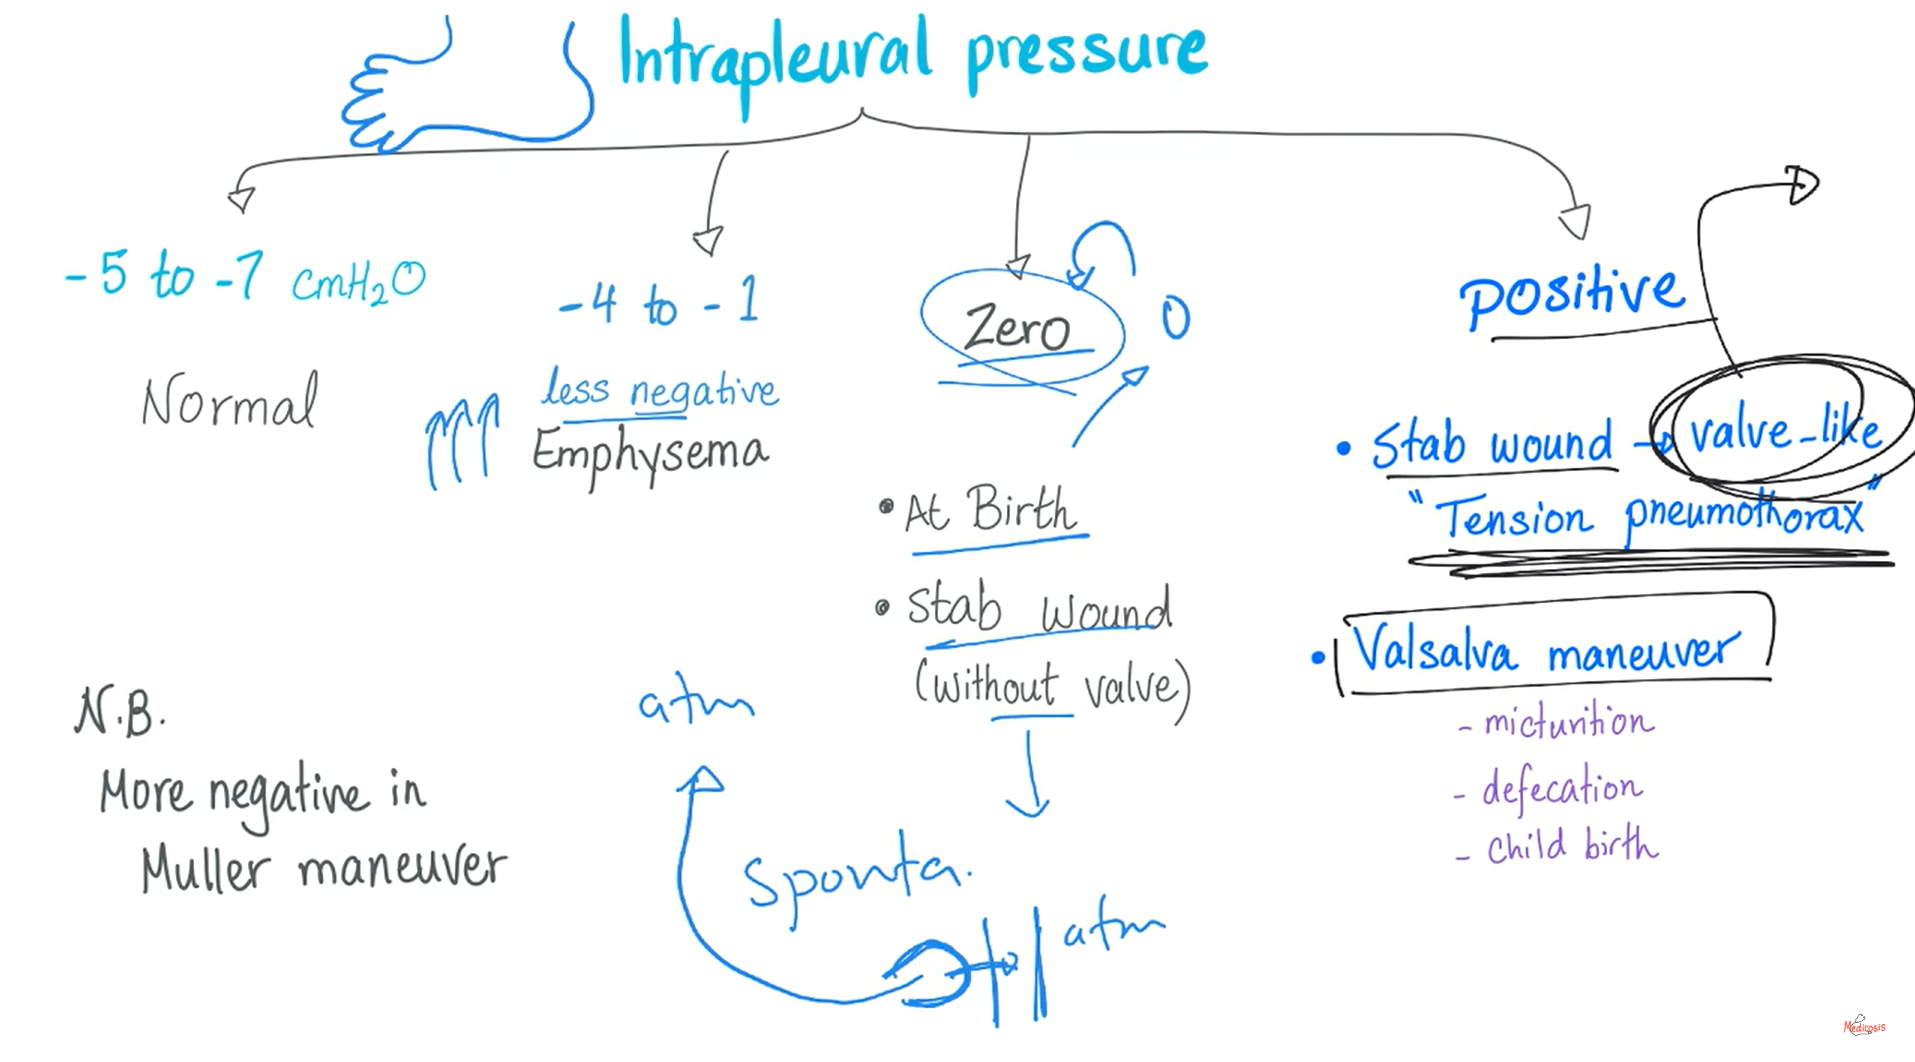 Intrapleural pressure
-5 to -7 cmH₂O
Normal
-4 to -1
less negative
Emphysema
Zero
0
• At Birth
• Stab wound
(without valve)
Sponta.
atm
atm
positive
• Stab wound → valve-like
"Tension pneumothorax"
• Valsalva maneuver
- micturition
- defecation
- child birth
N.B.
More negative in
Muller maneuver
Medicosis